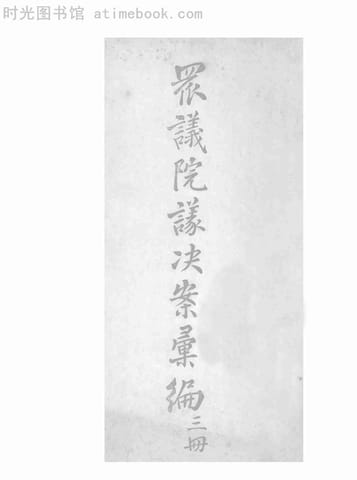 时光图书馆 atimebook.com
眾議院議决案彙編
三冊